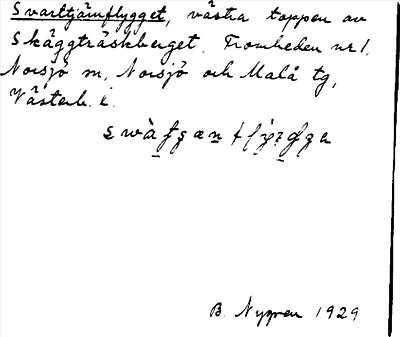 Svarttjärnflygget, västra toppen av
Skäggträskberget, Fromheden nr 1,
Norsjö sn, Norsjö och Malå tg,
Västerb. l.
B. Nygren 1929